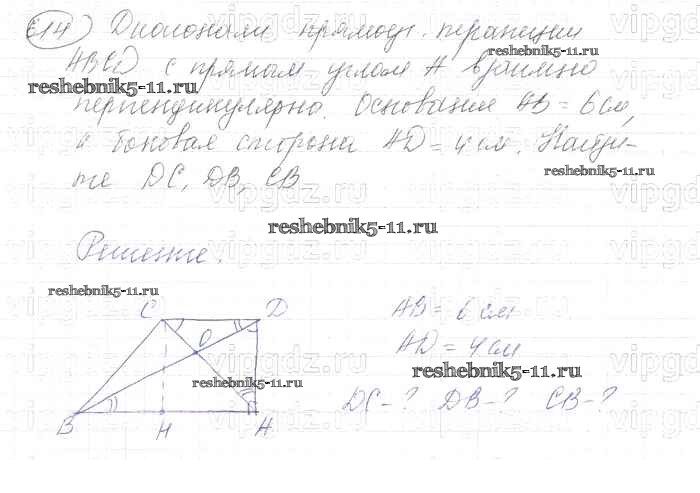 614) Диагонали прямоуг. трапеции
ABCD с прямым углом A взаимно
reshebnik5-11.ru
reshebnik5-11.ru
перпендикулярно. Основание AB = 6 см,
а боковая сторона AD = 4 см. Найди-
те DC, DB, CB
reshebnik5-11.ru
reshebnik5-11.ru
Решение.
reshebnik5-11.ru
C D
AB = 6 см
O
AD = 4 см
reshebnik5-11.ru
reshebnik5-11.ru
DC - ? DB - ? CB - ?
B H A
vipgdz.ru